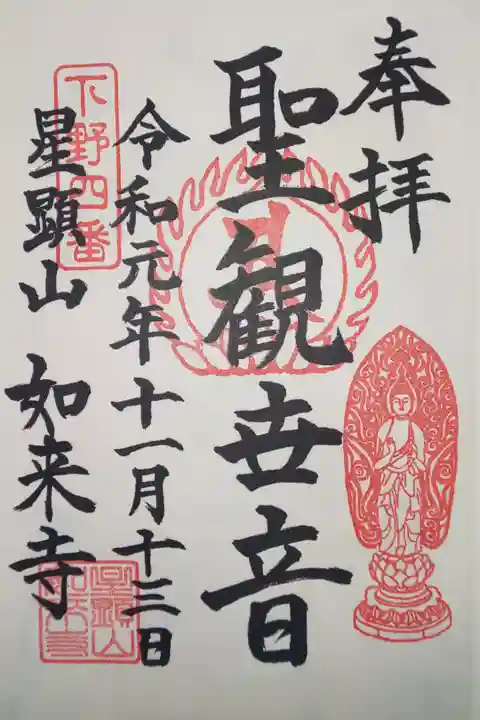 奉拝
聖観世音
令和元年十一月十三日
下野四番
星顕山 如来寺
星顕山如来寺